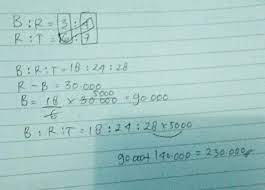 B : R = 3 : 4
R : T = 6 : 7
B : R : T = 18 : 24 : 28
R - B = 30.000
5000
B = 18/6 x 30 000 = 90 000
B : R : T = 18 : 24 : 28 x 5000
90000 + 140.000 = 230.000